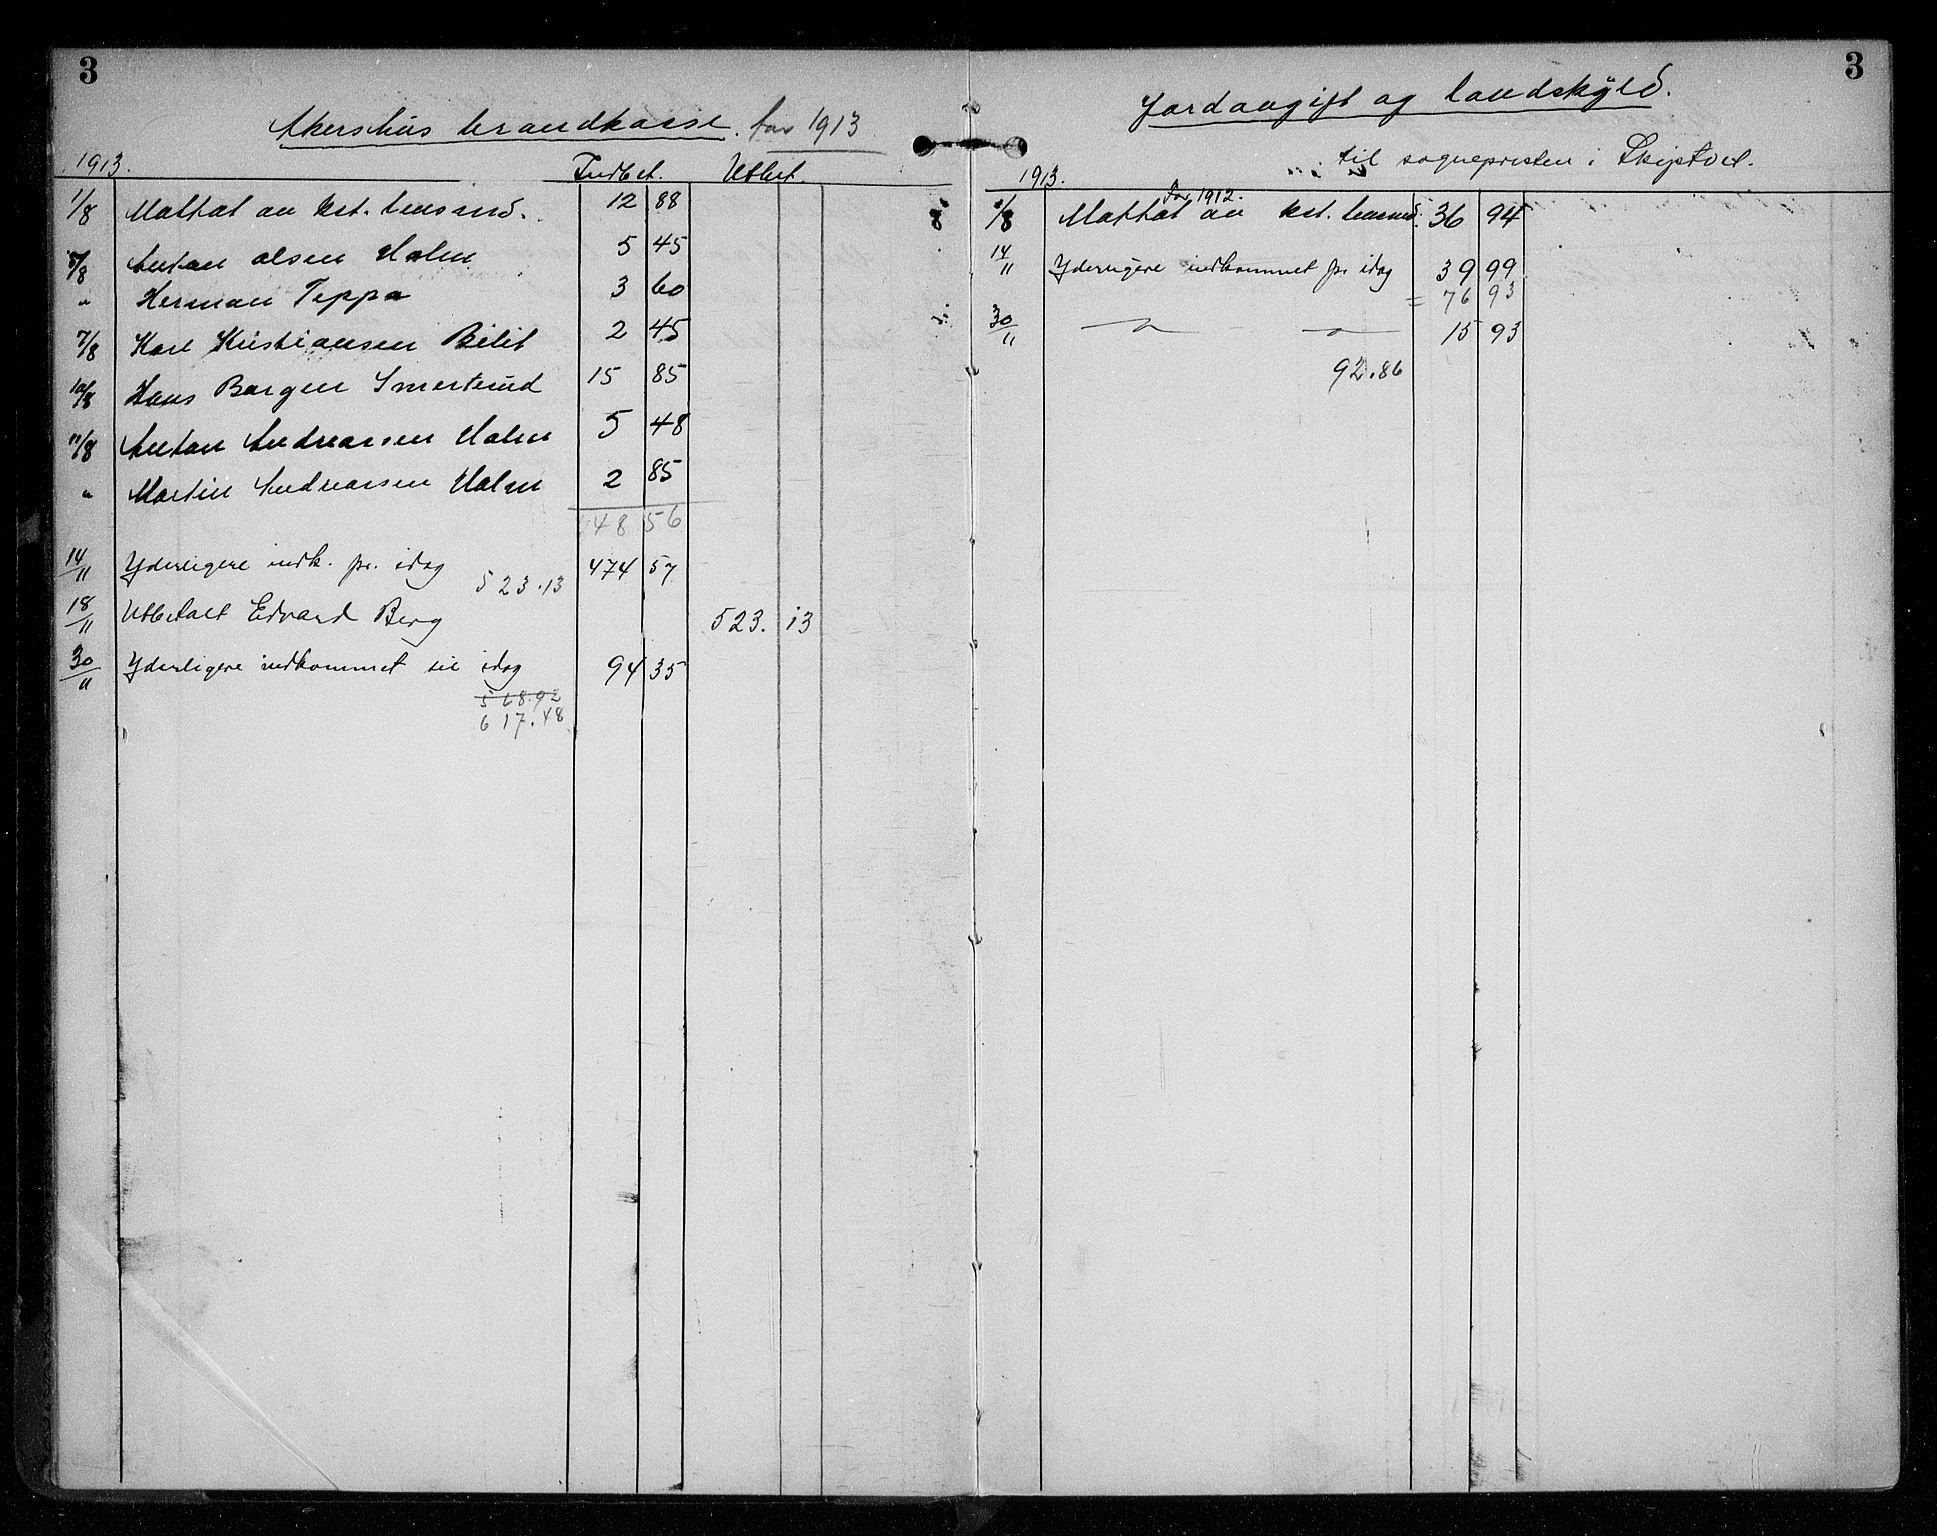 3
Akershus brandkasse for 1913
1913. Indbet. Utbet.
1/8 Mottat av kst. lensmd. 12 88
5/8 Anton Olsen Holm 5 45
" Herman Teppa 3 60
7/8 Karl Kristiansen Bilit 2 45
10/8 Hans Borgen Smerterud 15 85
11/8 Anton Andreassen Holm 5 48
" Martin Andreassen Holm 2 85
48 56
14/11 Yderligere indk. pr. idag 474 57
523.13
18/11 Utbetalt Edvard Berg 523. 13
30/11 Yderligere indkommet til idag 94 35
568.92
617.48
3
Jordavgift og landskyld.
til sognepresten i Skiptvet.
1913.
For 1912.
1/8 Mottat av kst. lensmd. 36 94
14/11 Yderligere indkommet pr idag 39 99
= 76 93
30/11 — " — — " — 15 93
92.86